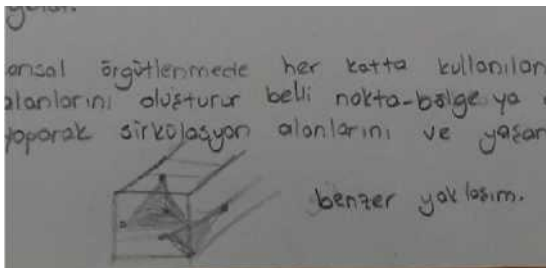 ansal örgütlenmede her katta kullanılan
alanlarını oluşturur belli nokta-bölge ya
yaparak sirkülasyon alanlarını ve yaşan
benzer yaklaşım.